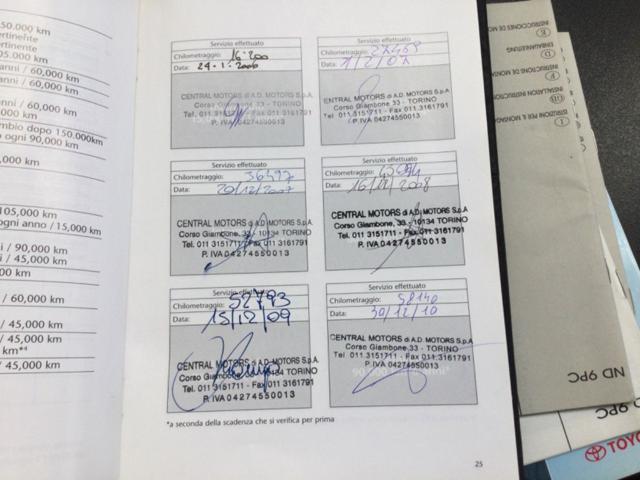 50.000 km
ertinente
pertinente
05.000 km
anni / 60,000 km
anni / 60,000 km
anni / 60,000 km
mbio dopo 150.000km
o ogni 90,000 km
105,000 km
ogni anno / 15,000 km
i / 90,000 km
i / 45,000 km
/ 60,000 km
/ 45,000 km
km*⁴
/ 45,000 km
Servizio effettuato
Chilometraggio: 16.200
Data: 24-1-2006
CENTRAL MOTORS di A.D. MOTORS S.p.A.
Corso Giambone 33 - TORINO
Tel. 011 3151711 - Fax 011 3161791
P. IVA 04274550013
Servizio effettuato
Chilometraggio: 27469
Data: 1/2/07
CENTRAL MOTORS di A.D. MOTORS S.p.A.
Corso Giambone 33 - TORINO
Tel. 011 3151711 - Fax 011 3161791
P. IVA 04274550013
Servizio effettuato
Chilometraggio: 36497
Data: 20/12/2007
CENTRAL MOTORS di A.D. MOTORS S.p.A.
Corso Giambone, 33 - 10134 TORINO
Tel. 011 3151711 - Fax 011 3161791
P. IVA 04274550013
Servizio effettuato
Chilometraggio:
Data: 16/12/2008
CENTRAL MOTORS di A.D. MOTORS S.p.A.
Corso Giambone, 33 - 10134 TORINO
Tel. 011 3151711 - Fax 011 3161791
P. IVA 04274550013
Servizio effettuato
Chilometraggio: 52793
Data: 15/12/09
CENTRAL MOTORS di A.D. MOTORS S.p.A.
Corso Giambone, 33 - 10134 TORINO
Tel. 011 3151711 - Fax 011 3161791
P. IVA 04274550013
Servizio effettuato
Chilometraggio: 58140
Data: 30/12/10
CENTRAL MOTORS di A.D. MOTORS S.p.A.
Corso Giambone, 33 - 10134 TORINO
Tel. 011 3151711 - Fax 011 3161791
P. IVA 04274550013
*a seconda della scadenza che si verifica per prima
25
INSTRUCCIONES DE MO
EINBAUANLEITUNG
INSTALLATION INSTRUCTION
ISTRUZIONI PER MONTAG
ND 9PC
9PC
TOYO